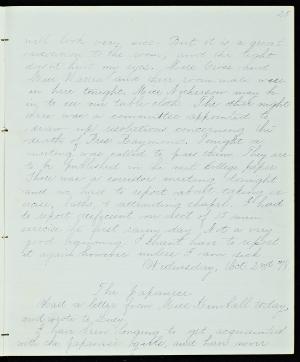 28
will look very nice. But it is a great
to the room, and the light
don't hurt my eyes. Miss
Miss and their room mate were
in here tonight. Miss may be
in to see our table cloth. The other night
there was a committee appointed to
draw up resolutions concerning the
death of Pres Raymond. Tonight a
meeting was called to pass them. They are
to be published in the next College paper.
There was a corridor meeting tonight
and we had to report about taking ex-
ercise, baths, & attending chapel. I had
to report deficient one sect of it
service for first rainy day. Not a very
good beginning. I shan't have to report
it again however unless I am sick.
Wednesday, Oct 2nd 78
The Japanese
Had a letter from Miss Kimball today,
and wrote to
I have been longing to get acquainted
with the Japanese girls, and have